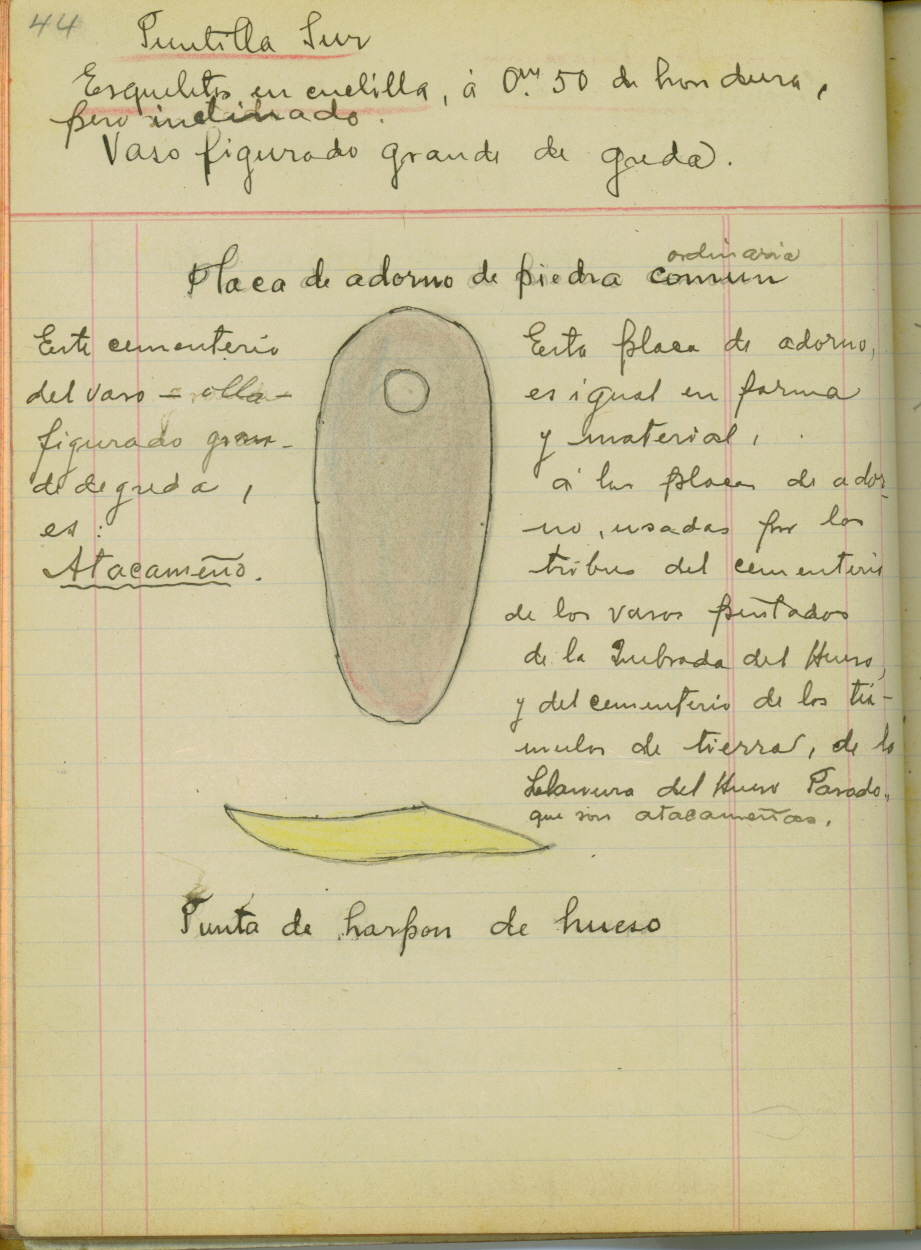 44
Puntilla Sur
Esqueletos en cuclilla, á 0.m 50 de hondura,
pero inclinado.
Vaso figurado grande de greda.
ordinaria
Placa de adorno de piedra comun
Este cementerio
del vaso – olla –
figurado gran-
de de greda,
es:
Atacameño.
Esta placa de adorno,
es igual en forma
y material,
á las placas de ador-
no, usadas por las
tribus del cementerio
de los vasos pintados
de la Quebrada del Hueso,
y del cementerio de los tú-
mulos de tierra, de la
Llanura del Hueso Parado,
que son atacameñas.
Punta de harpon de hueso